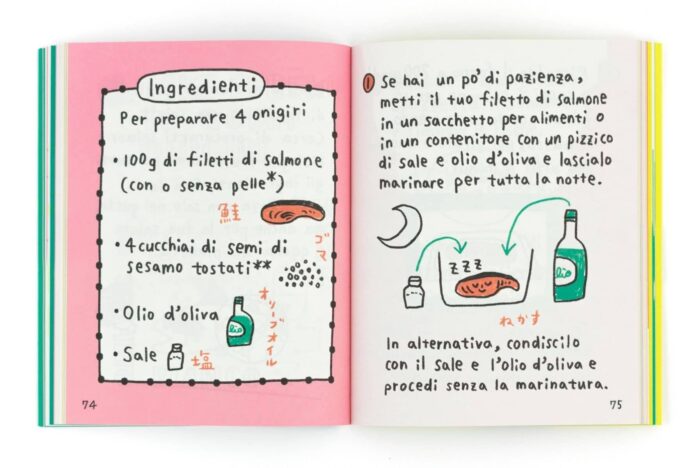 Ingredienti
Per preparare 4 onigiri
• 100g di filetti di salmone
(con o senza pelle*)
鮭
ゴマ
• 4 cucchiai di semi di
sesamo tostati**
• Olio d'oliva
olio
オリーブオイル
• Sale
塩
74
1 Se hai un po' di pazienza,
metti il tuo filetto di salmone
in un sacchetto per alimenti o
in un contenitore con un pizzico
di sale e olio d'oliva e lascialo
marinare per tutta la notte.
zzz
olio
ねかす
In alternativa, condiscilo
con il sale e l'olio d'oliva e
procedi senza la marinatura.
75